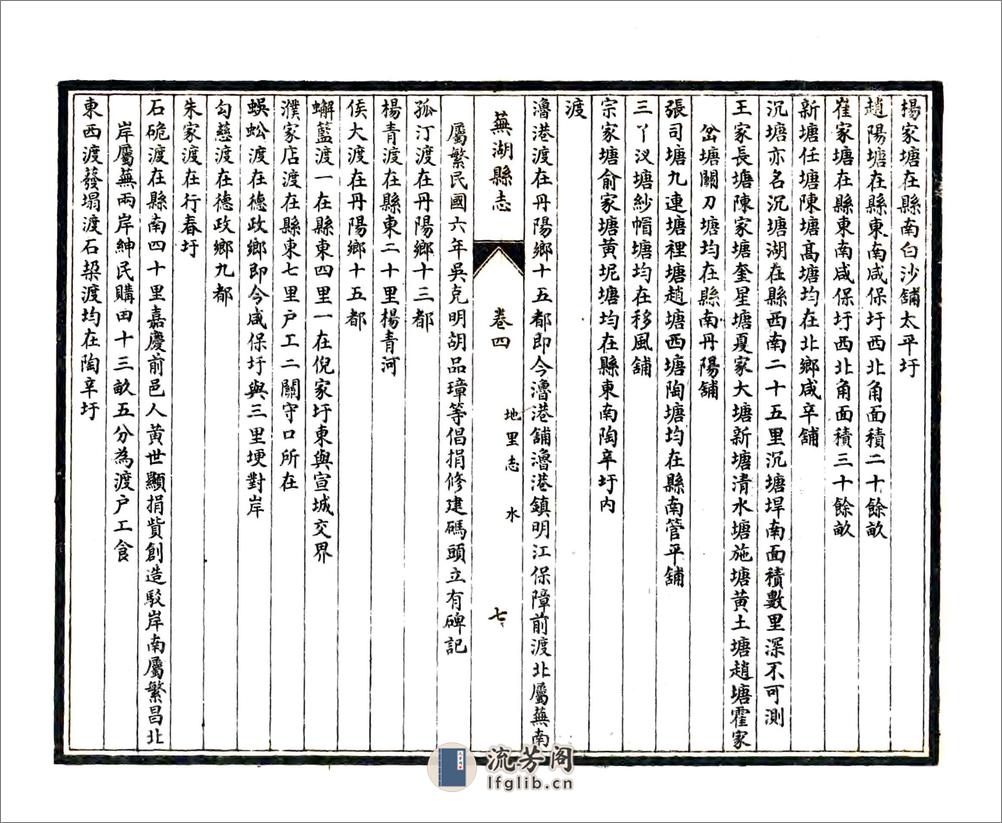 楊家塘在縣南白沙舖太平圩
趙陽塘在縣東南咸保圩西北角面積二十餘畝
崔家塘在縣東南咸保圩西北角面積三十餘畝
新塘任塘陳塘高塘均在北鄉咸辛舖
沉塘亦名沉塘湖在縣西南二十五里沉塘埠南面積數里深不可測
王家長塘陳家塘奎星塘夏家大塘新塘清水塘施塘黃土塘趙塘霍家
盆塘關刀塘均在縣南丹陽舖
張司塘九連塘裡塘趙塘西塘陶塘均在縣南管平舖
三丫汊塘紗帽塘均在移風舖
宗家塘俞家塘黃坭塘均在縣東南陶辛圩内
渡
澛港渡在丹陽鄉十五都即今澛港舖澛港鎮明江保障前渡北屬蕪南
蕪湖縣志
卷四
地里志
水
七
屬繁民國六年吳克明胡品璋等倡捐修建碼頭立有碑記
孤汀渡在丹陽鄉十三都
楊青渡在縣東二十里楊青河
侯大渡在丹陽鄉十五都
蠏藍渡一在縣東四里一在倪家圩東與宣城交界
濮家店渡在縣東七里戶工二關守口所在
蜈蚣渡在德政鄉即今咸保圩與三里埂對岸
勾慈渡在德政鄉九都
朱家渡在行春圩
石硊渡在縣南四十里嘉慶前邑人黃世顯捐貲創造駁岸南屬繁昌北
岸屬蕪兩岸紳民購四十三畝五分為渡戶工食
東西渡發塌渡石𣗳渡均在陶辛圩
流芳阁
lfglib.cn